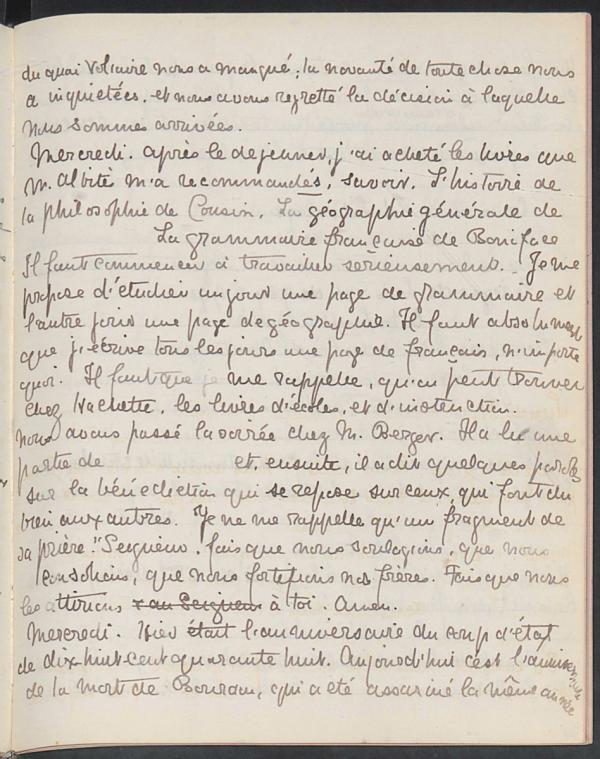 du quai Voltaire nous a manqué; la nouvauté de toute chose nous
a inquietées, et nous avons regretté la décision à laquelle
nous sommes arrivées.
Mercredi. après le dejeuner, j'ai acheté les livres que
M. Albité m'a recommandés, savoir. L'histoire de
la philosophie de Cousin. La géographie générale de
La grammaire française de Boniface
Il faut commencer à travailler sérieusement. Je me
propose d'étudier un jour une page de grammaire et
l'autre jour une page de géographie. Il faut absolument
que j'écrive tous les jours une page de français, n'importe
quoi. Il faut que je me rappelle, qu'on peut trouver
chez Hachette, les livres d'écoles, et d'instruction.
Nous avons passé la soirée chez M. Berger. Il a lu une
partie de et, ensuite, il a dit quelques paroles
sur la bénédiction qui se repose sur ceux, qui font du
bien aux autres. Je ne me rappelle qu'un fragment de
sa prière. "Seigneur, fais que nous soulagions, que nous
consolions, que nous fortifiions nos frères. Fais que nous
les attirions x au Seigneur à toi. Amen.
Mercredi. Hier était l'anniversaire du coup d'état
de dix-huit-cent quarante huit. Aujourd'hui c'est l'anniversaire
de la mort de , qui a été assasiné la même année